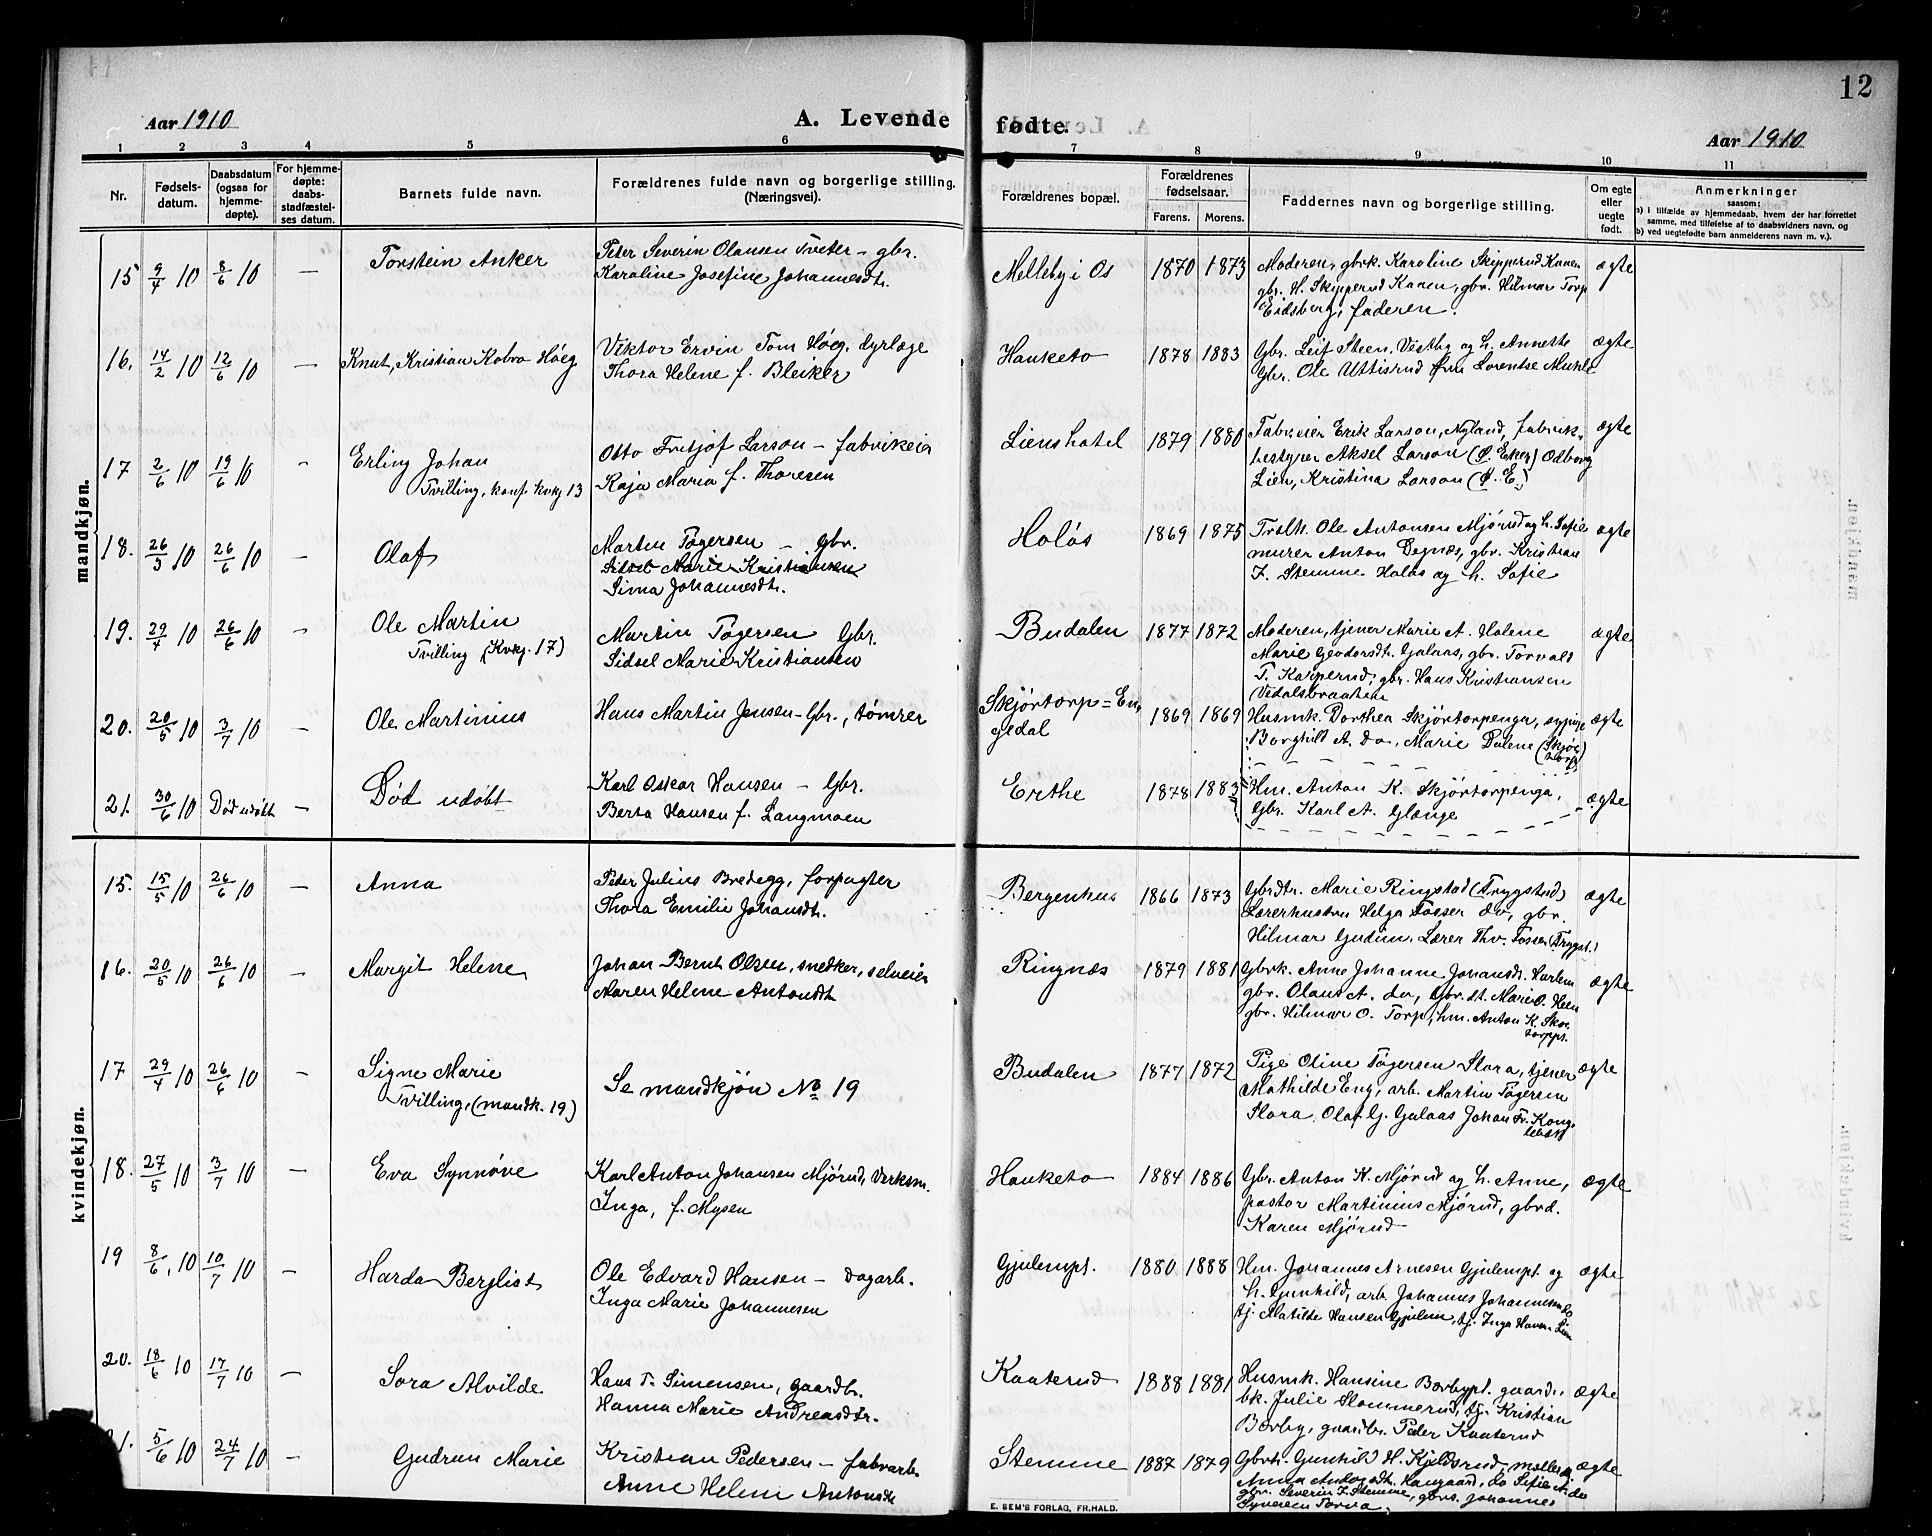 12
Aar 1910
A. Levende fødte.
Aar 1910
1 2 3 4 5 6 7 8 9 10 11
Nr.
Fødsels-
datum.
Daabsdatum
(ogsaa for
hjemme-
døpte).
For hjemme-
døpte:
daabs-
stadfæstel-
ses datum.
Barnets fulde navn.
Forældrenes fulde navn og borgerlige stilling.
(Næringsvei).
Forældrenes bopæl.
Forældrenes
fødselsaar.
Farens. Morens.
Faddernes navn og borgerlige stilling.
Om egte
eller
uegte
født.
Anmerkninger
saasom:
a) i tilfælde av hjemmedaab, hvem der har forrettet
samme, med tilføielse af to daabsvidners navn, og
b) ved uegtefødte barn anmelderens navn m. v.).
mandkjøn.
15 9/4 10 8/6 10 —
Torstein Anker
Peter Severin Olausen Tveter – gbr.
Karoline Josefine Johannesdt.
Melleby i Os 1870 1873
Moderen, gbrk. Karoline Skipperud Kanen
gbr. H. Skipperud Kanen, gbr. Hilmar Torp
Eidsberg, faderen.
ægte
16. 14/2 10 12/6 10 —
Knut, Kristian Kobro Høeg
Viktor Ervin Tom Høeg, dyrlæge
Thora Helene f. Bleiker
Hauketo 1878 1883
Gbr. Leif Steen, Vestby og h. Annette
Gbr. Ole Uttisrud Fru Lorentse Muhle
ægte
17 2/6 10 19/6 10 –
Erling Johan
Tvilling, konf. kvkj 13
Otto Fritjof Larson – fabrikeier
Raja Maria f. Thoresen
Lienshotel 1879 1880
Fabrieier Erik Larson, Nyland, fabrik-
bestyrer Aksel Larson (Ø. Eker) Odborg
Lien, Kristina Larson (Ø. E.)
ægte
18. 26/3 10 26/6 10 –
Olaf
Martin Tøgersen – gbr.
Sidsel Marie Kristiansen
Sima Johannesdt.
Holøs 1869 1875
Trolh. Ole Antonsen Mjørud og h. Sofie
murer Anton Degnæs, gbr. Kristian
F. Stemme Holøs og h. Sofie
ægte
19. 29/4 10 26/6 10 –
Ole Martin
Tvilling (Kvkj. 17)
Martin Tøgersen Gbr.
Sidsel Marie Kristiansen
Budalen 1877 1872
Moderen, tjener Marie A. Holene
Marie Gudorsdt. Galaas, gbr. Torvald
T. Karperud, gbr. Hans Kristiansen
Vidalsbraaten
ægte
20. 20/5 10 3/7 10 –
Ole Martinius
Hans Martin Jensen – Gbr., tømrer
Skjørtorp=En,
gedal 1869 1869
Husmk. Dorthea Skjørtorpenga, sypige
Borghild A. Do, Marie Dalene (Skjør
torp)
ægte
21. 30/6 10 Død udøbt –
Død udøbt
Karl Oskar Hansen – Gbr.
Berta Hansen f. Langmoen
Erthe 1878 1883
Hm. Anton K. Skjørtorpenga,
Gbr. Karl A. Glænge
ægte
kvindekjøn.
15. 15/5 10 26/6 10 –
Anna
Peder Julius Bredegg, forpagter
Thora Emilie Johansdt.
Bergenhus 1866 1873
Gbrdtr. Marie Ringstad (Trygstad)
Lærerhustru Helga Fosser do, gbr.
Hilmar Gudim, Lærer Thv. Fosser (Trygst.)
ægte
16. 20/5 10 26/6 10 –
Margit Helene
Johan Bernt Olsen, snedker, selveier
Maren Helene Antonsdt.
Ringnæs 1879 1881
Gbrk. Anne Johanne Johansdt. Harlem
gbr. Olaus A. do, Gbr. dt. Marie O. Heen
gbr. Hilmar O. Torp, hm. Anton K. Skør
torppt.
ægte
17 29/4 10 26/6 10 –
Signe Marie
Tvilling, (mandk. 19)
Se mandkjøn No 19
Budalen 1877 1872
Pige Oline Tøgersen Slora, tjener
Mathilde Eng, arb. Martin Tøgersen
Slora, Olaf G. Galaas Johan Fr. Kong
ægte
18. 27/5 10 3/7 10 –
Eva Synnøve
Karl Anton Johansen Mjørud, Verksm.
Inga, f. Mysen
Hauketo 1884 1886
Gbr. Anton K. Mjørud og h. Anne,
pastor Martinius Mjørud, gbrd.
Karen Mjørud
ægte
19 8/6, 10 10/7 10 –
Harda Bergliot
Ole Edvard Hansen – Dagarb.
Inga Marie Johannesen
Gjulempt. 1880 1888
Hm. Johannes Arnesen Gjulempt. og
h. Gunhild, arb. Johannes Johannesen do
tj. Matilde Hansen Gjulem, tj. Inga Hansen Lien
ægte
20. 18/6 10 17/7 10 –
Sora Alvilde
Hans T. Simensen, gaardbr.
Hanna Marie Andreasdtr.
Kaaterud 1888 1881
Husmk. Hansine Børbypt. gaard.
bk. Julie Slommerud, tj. Kristian
Børby, gaardbr. Peder Kaaterud
ægte
21. 5/6 10 24/7 10
Gudrun Marie
Kristian Pedersen – fabrarb.
Anne Helene Antonsdt
Stemme 1887 1879
Gbrdt. Gunhild H. Kjeldsrud, møller
gbr. Severin F. Stemme, gbrs. Johannes
Syversen Torva.
ægte
E. SEM'S FORLAG, FR.HALD.